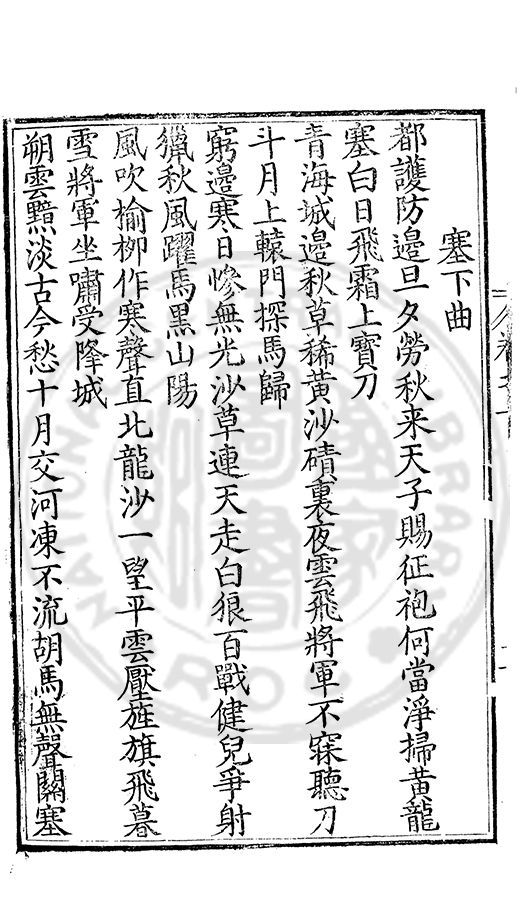 塞下曲
都護防邉旦夕勞秋来天子賜征袍何當淨掃黄龍
塞白日飛霜上寳刀
青海城邉秋草稀黄沙磧裏夜雲飛將軍不寐聽刀
斗月上轅門探馬歸
窮邉寒日慘無光沙草連天走白狼百戰健兒爭射
獵秋風躍馬黒山陽
風吹榆栁作寒聲直北龍沙一望平雲壓旌旗飛暮
雪將軍坐嘯受降城
朔雲黯淡古今愁十月交河凍不流胡馬無聲關塞